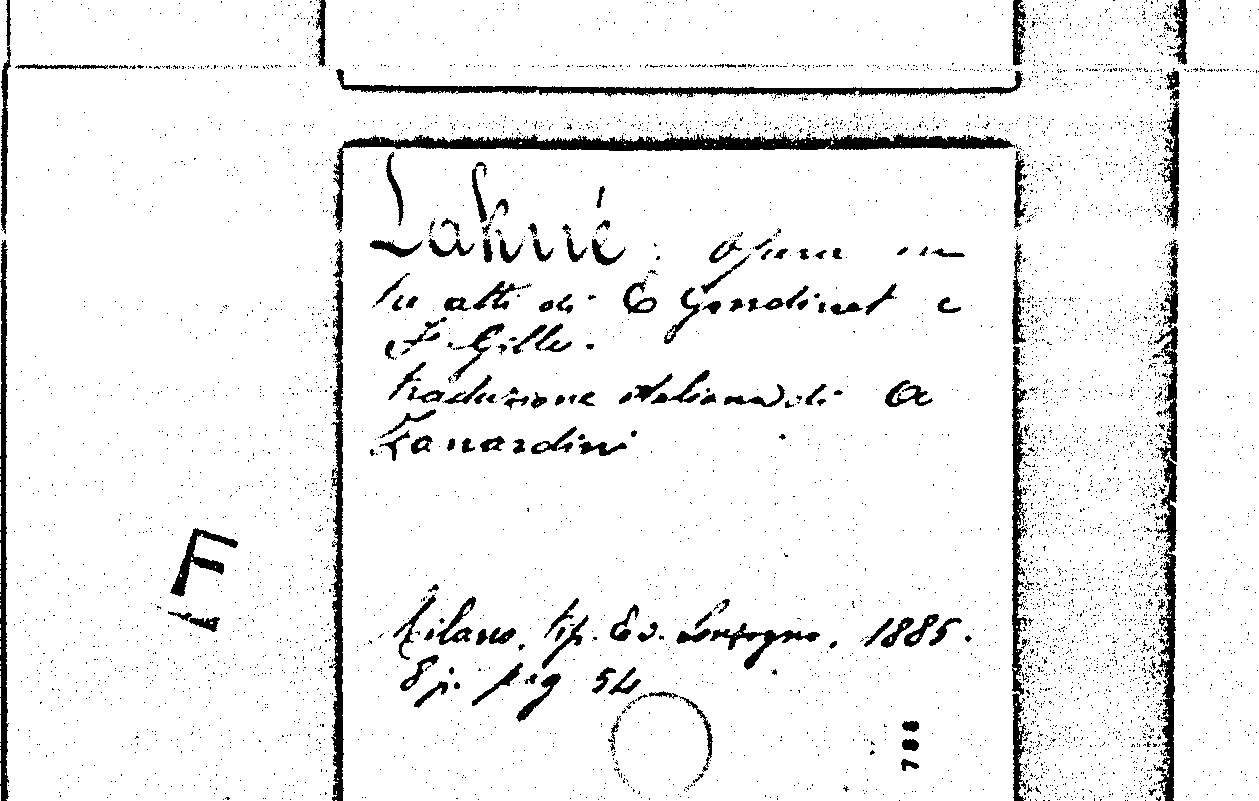 Lakmé. Opera in
tre atti di E Gondinet e
F. Gille.
traduzione italiana di A
Zanardini
F
Milano, tip. Ed. Sonzogno, 1885.
8p. pag 54
788